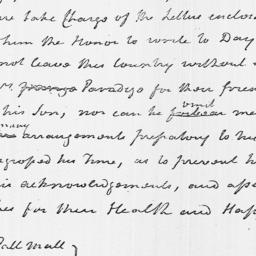 take Charge of the Letter enclos
him the Honor to write to Day
not leave this Country without
M. Paradyso for their frie
his Son, nor can he omit me
many
arrangements prepatory to his
grossed his time, as to prevent h
is acknowledgements, and ass
es for their Health and Hap
Pall Mall